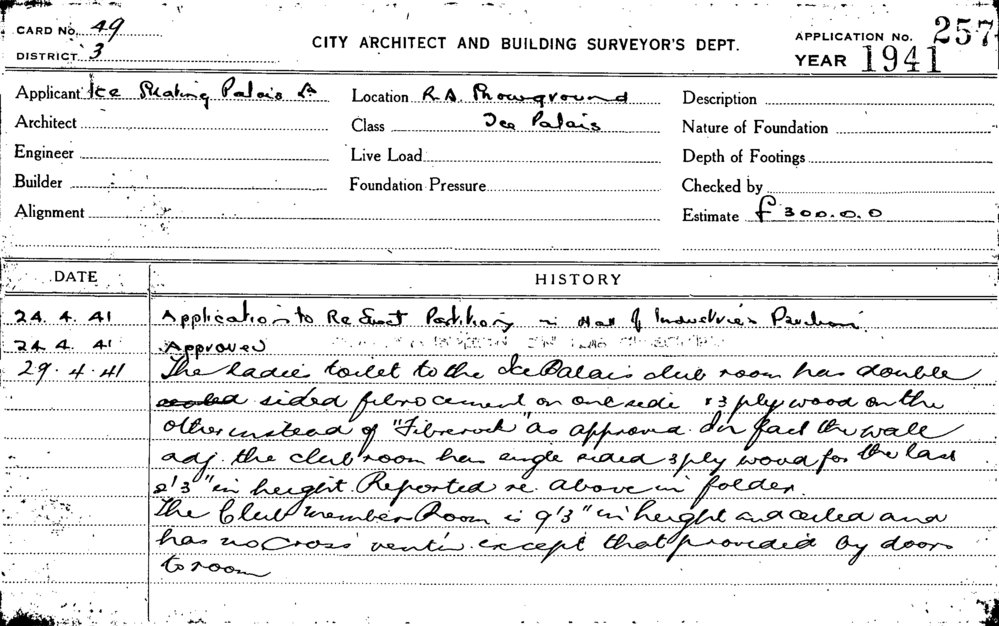 CARD No. 49
DISTRICT 3
CITY ARCHITECT AND BUILDING SURVEYOR'S DEPT.
APPLICATION No. 257
YEAR 1941
Applicant Ice Skating Palais Ld
Location R.A. Showground
Description
Architect
Class Ice Palais
Nature of Foundation
Engineer
Live Load
Depth of Footings
Builder
Foundation Pressure
Checked by
Alignment
Estimate £ 300.0.0
DATE HISTORY
24.4.41 Application to Re Erect Partitions in Hall of Industries Pavilion.
24.4.41 Approved
29.4.41 The Ladies toilet to the Ice Palais club room has double
sided fibro cement on one side & 3 ply wood on the
other instead of "Fibrerock" as approved. In fact the wall
adj. the club room has single sided 3 ply wood for the last
2'3" in height. Reported re. above in folder.
The Club Members Room is 9'3" in height and ceiled and
has no cross vent'n except that provided by doors
to room